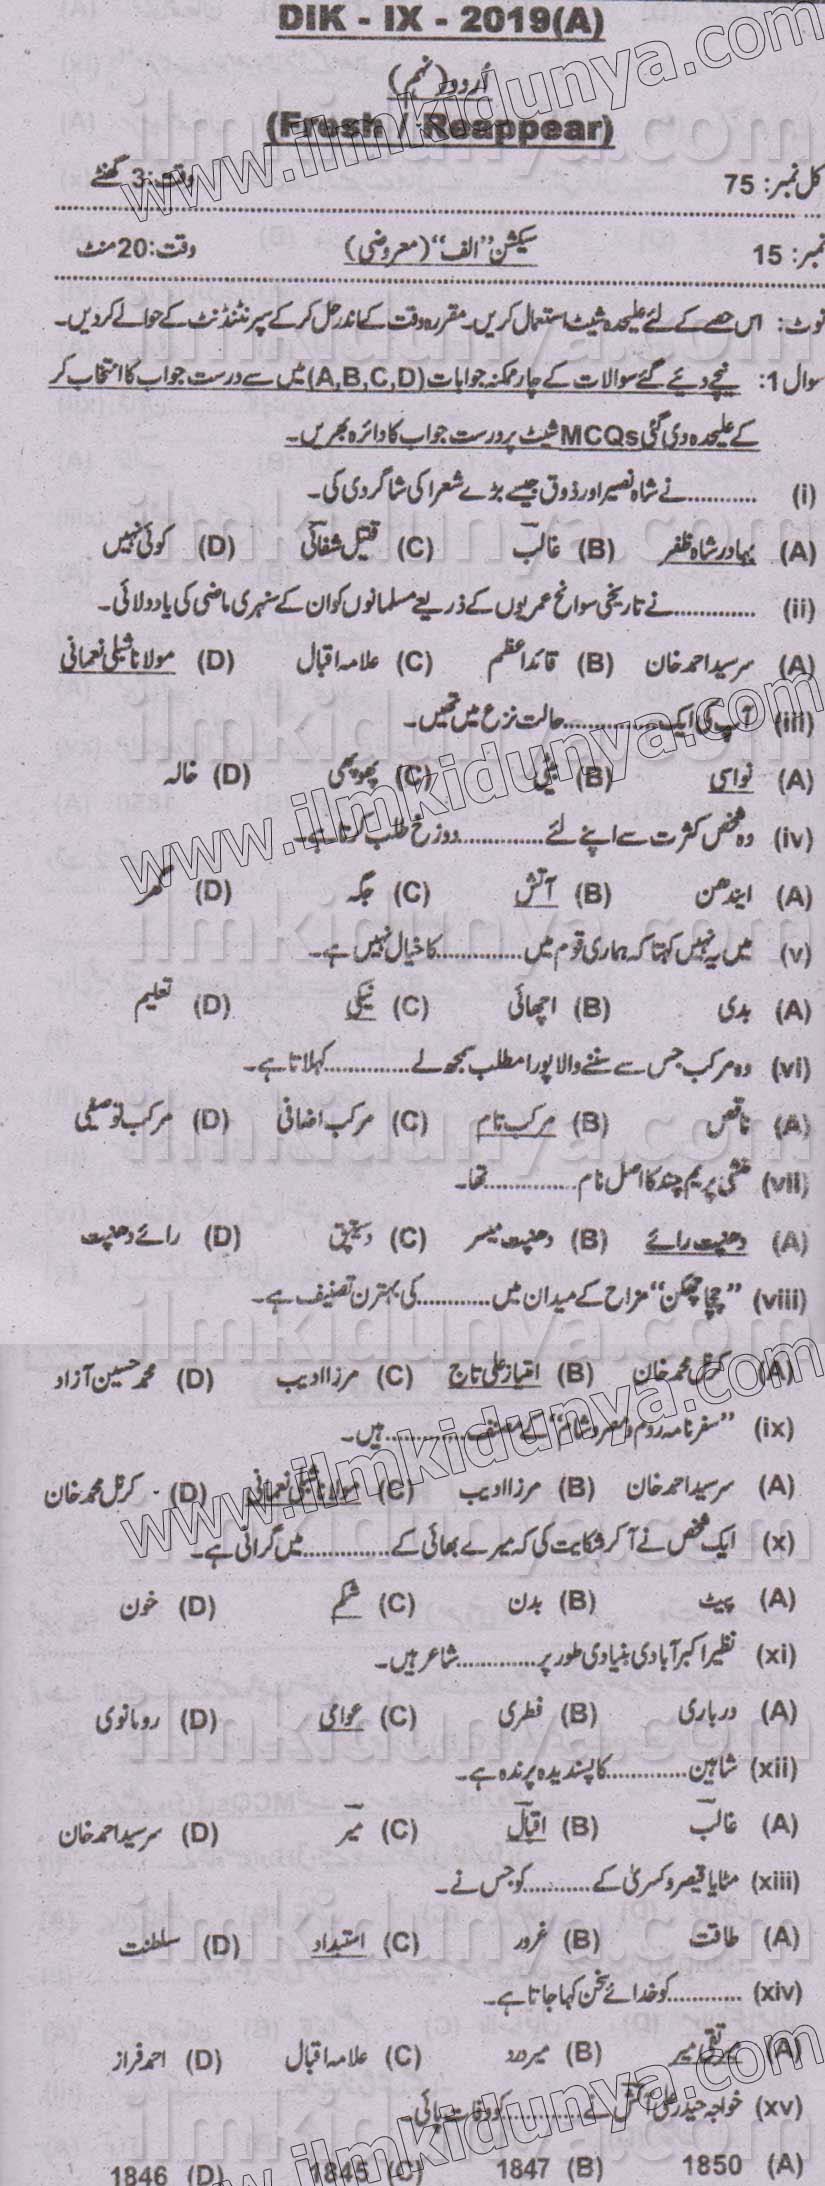 DIK - IX - 2019(A)
اُردو (نہم)
(Fresh / Reappear)
کل نمبر: 75 وقت: 3 گھنٹے
نمبر: 15 سیکشن ”الف“ (معروضی) وقت: 20 منٹ
نوٹ: اس حصے کے لئے علیحدہ شیٹ استعمال کریں۔ مقررہ وقت کے اندر حل کرکے سپرنٹنڈنٹ کے حوالے کر دیں۔
سوال 1: نیچے دیئے گئے سوالات کے چار ممکنہ جوابات (A,B,C,D) میں سے درست جواب کا انتخاب کر
کے علیحدہ دی گئی MCQs شیٹ پر درست جواب کا دائرہ بھریں۔
(i) ............نے شاہ نصیر اور ذوق جیسے بڑے شعرا کی شاگردی کی۔
(A) بہادر شاہ ظفر (B) غالبؔ (C) قتیل شفائیؔ (D) کوئی نہیں
(ii) ............نے تاریخی سوانح عمریوں کے ذریعے مسلمانوں کو ان کے سنہری ماضی کی یاد دلائی۔
(A) سرسید احمد خان (B) قائداعظم (C) علامہ اقبال (D) مولانا شبلی نعمانی
(iii) آپ کی ایک............حالت نزع میں تھیں۔
(A) نواسی (B) بیٹی (C) پھوپھی (D) خالہ
(iv) وہ شخص کثرت سے اپنے لئے............دوزخ طلب کرتا ہے۔
(A) ایندھن (B) آتش (C) جگہ (D) گھر
(v) میں یہ نہیں کہتا کہ ہماری قوم میں............کا خیال نہیں ہے۔
(A) بدی (B) اچھائی (C) نیکی (D) تعلیم
(vi) وہ مرکب جس سے سننے والا پورا مطلب سمجھ لے............کہلاتا ہے۔
(A) ناقص (B) مرکب تام (C) مرکب اضافی (D) مرکب توصیفی
(vii) منشی پریم چند کا اصل نام............تھا۔
(A) دھنپت رائے (B) دھنپت میسر (C) (D) رائے دھنپت
(viii) ”چچا چھکن“ مزاح کے میدان میں............کی بہترن تصنیف ہے۔
(A) کرنل محمد خان (B) امتیاز علی تاج (C) مرزا ادیب (D) محمد حسین آزاد
(ix) ”سفر نامہ روم و مصر و شام“ کے مصنف............ہیں۔
(A) سرسید احمد خان (B) مرزا ادیب (C) مولانا شبلی نعمانی (D) کرنل محمد خان
(x) ایک شخص نے آ کر شکایت کی کہ میرے بھائی کے............میں گرانی ہے۔
(A) پیٹ (B) بدن (C) شکم (D) خون
(xi) نظیر اکبر آبادی بنیادی طور پر............شاعر ہیں۔
(A) درباری (B) فطری (C) عوامی (D) رومانوی
(xii) شاہین............کا پسندیدہ پرندہ ہے۔
(A) غالبؔ (B) اقبالؔ (C) میرؔ (D) سرسید احمد خان
(xiii) مٹایا قیصر و کسریٰ کے............کو جس نے۔
(A) طاقت (B) غرور (C) استبداد (D) سلطنت
(xiv) ............کو خدائے سخن کہا جاتا ہے۔
(A) میر تقی میر (B) میر درد (C) علامہ اقبال (D) احمد فراز
(xv) خواجہ حیدر علی آتش نے............کو وفات پائی۔
(A) 1850 (B) 1847 (C) 1845 (D) 1846
www.ilmkidunya.com